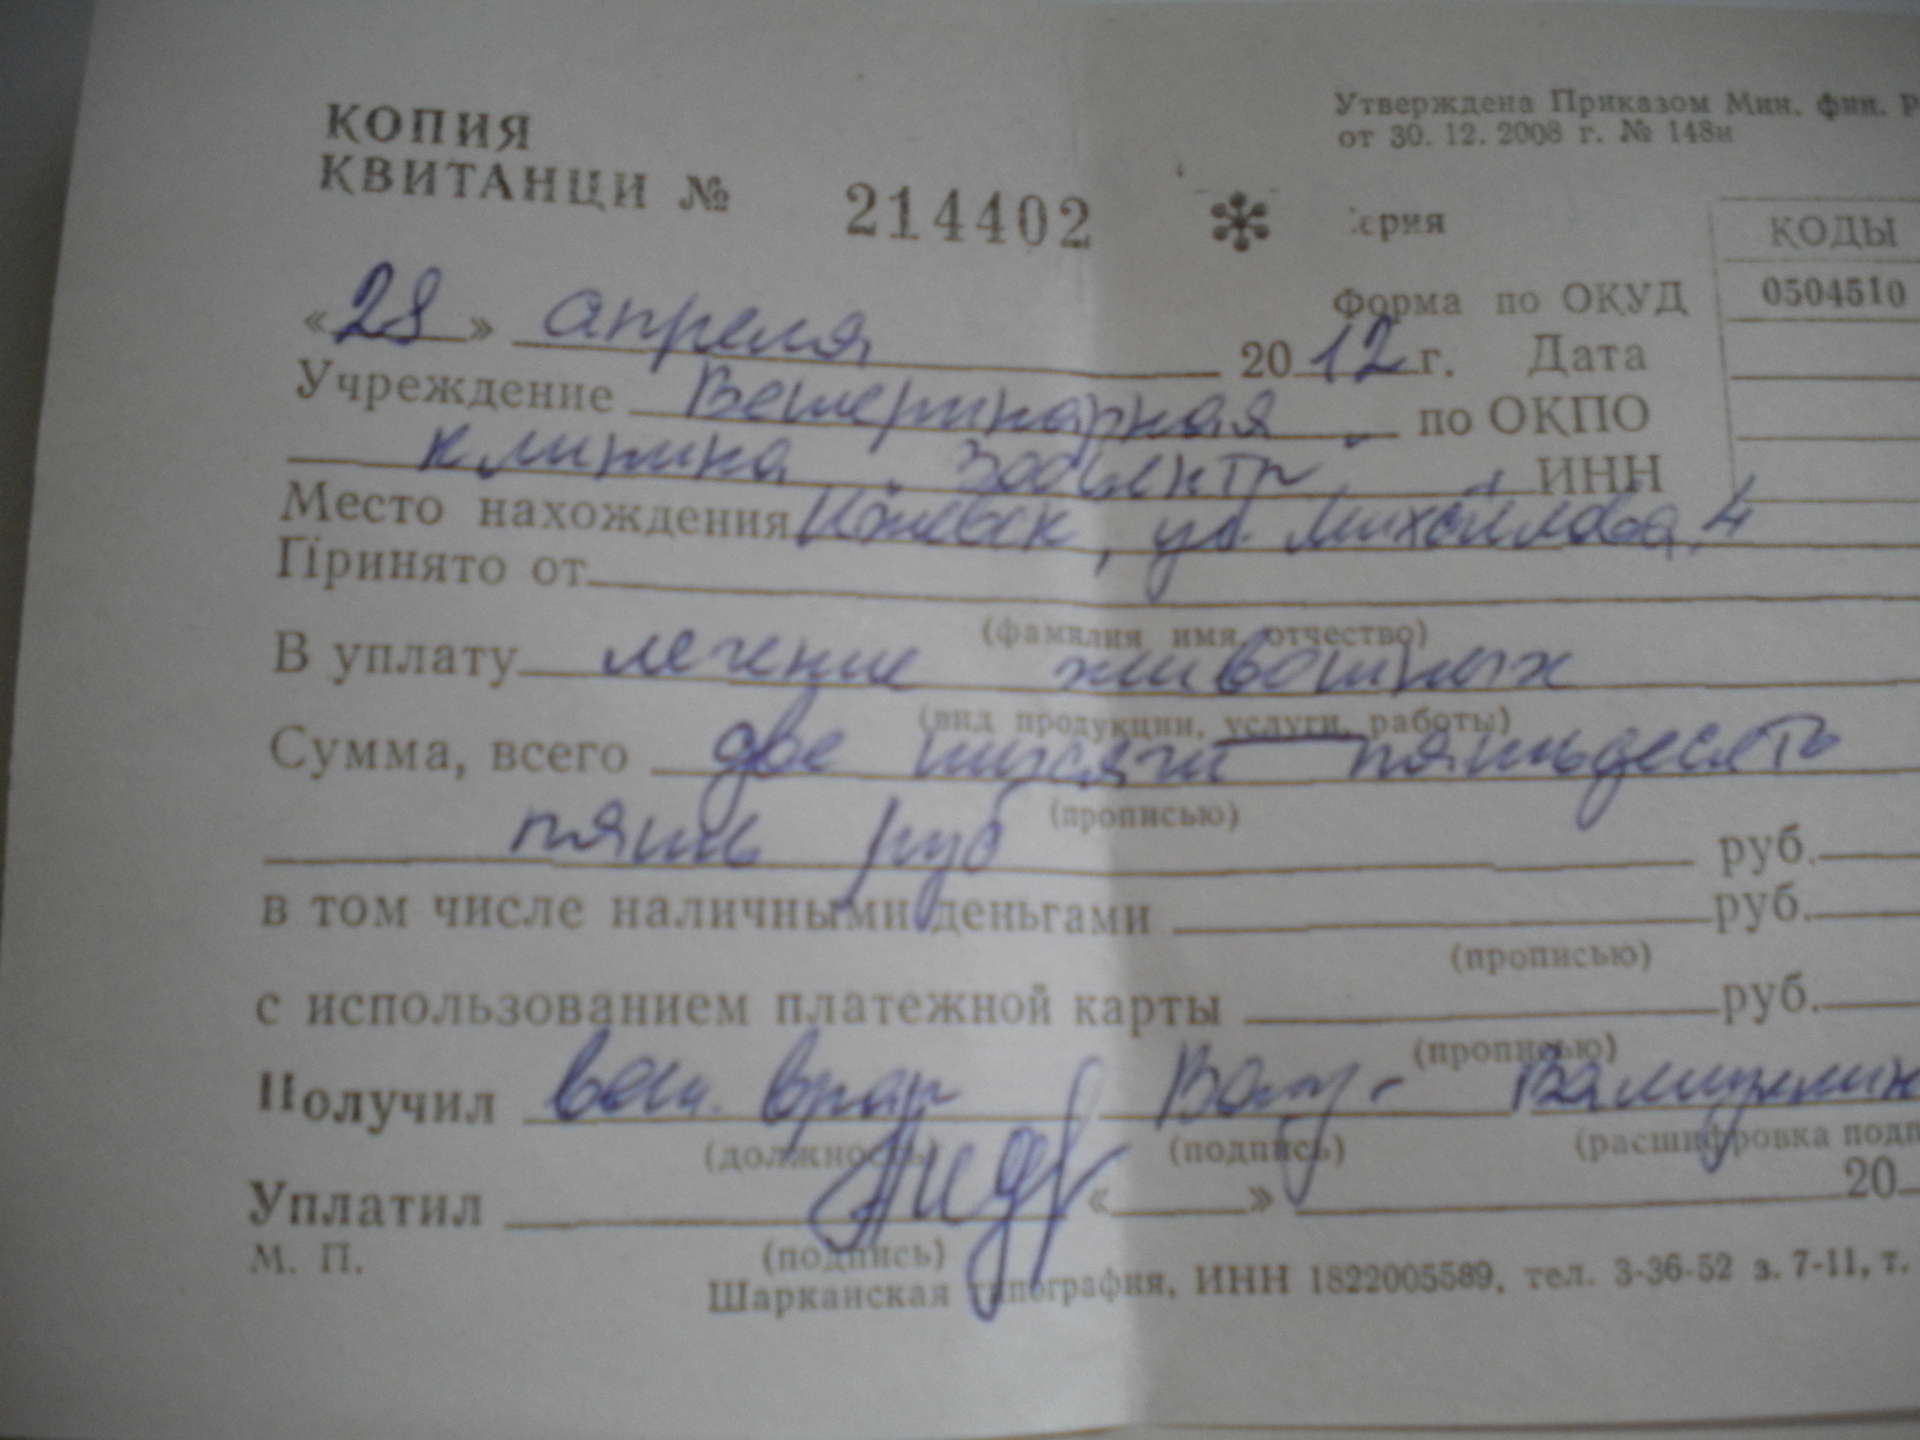 КОПИЯ
КВИТАНЦИ № 214402
Утверждена Приказом Мин. фин. Р
от 30. 12. 2008 г. № 148н
ерия
КОДЫ
Форма по ОКУД 0504510
«28» апреля 2012 г. Дата
Учреждение Ветеринарная по ОКПО
клиника Зооцентр ИНН
Место нахождения Ижевск, ул. Михайлова, 4
Принято от
(фамилия имя отчество)
В уплату лечение животных
(вид продукции, услуги, работы)
Сумма, всего две тысячи пятьдесять
(прописью)
пять руб руб.
в том числе наличными деньгами руб.
(прописью)
с использованием платежной карты руб.
(прописью)
Получил вет. врач
(должность) (подпись) (расшифровка подп
Уплатил « » 20
М. П. (подпись)
Шарканская типография, ИНН 1822005589, тел. 3-36-52 з. 7-11, т.